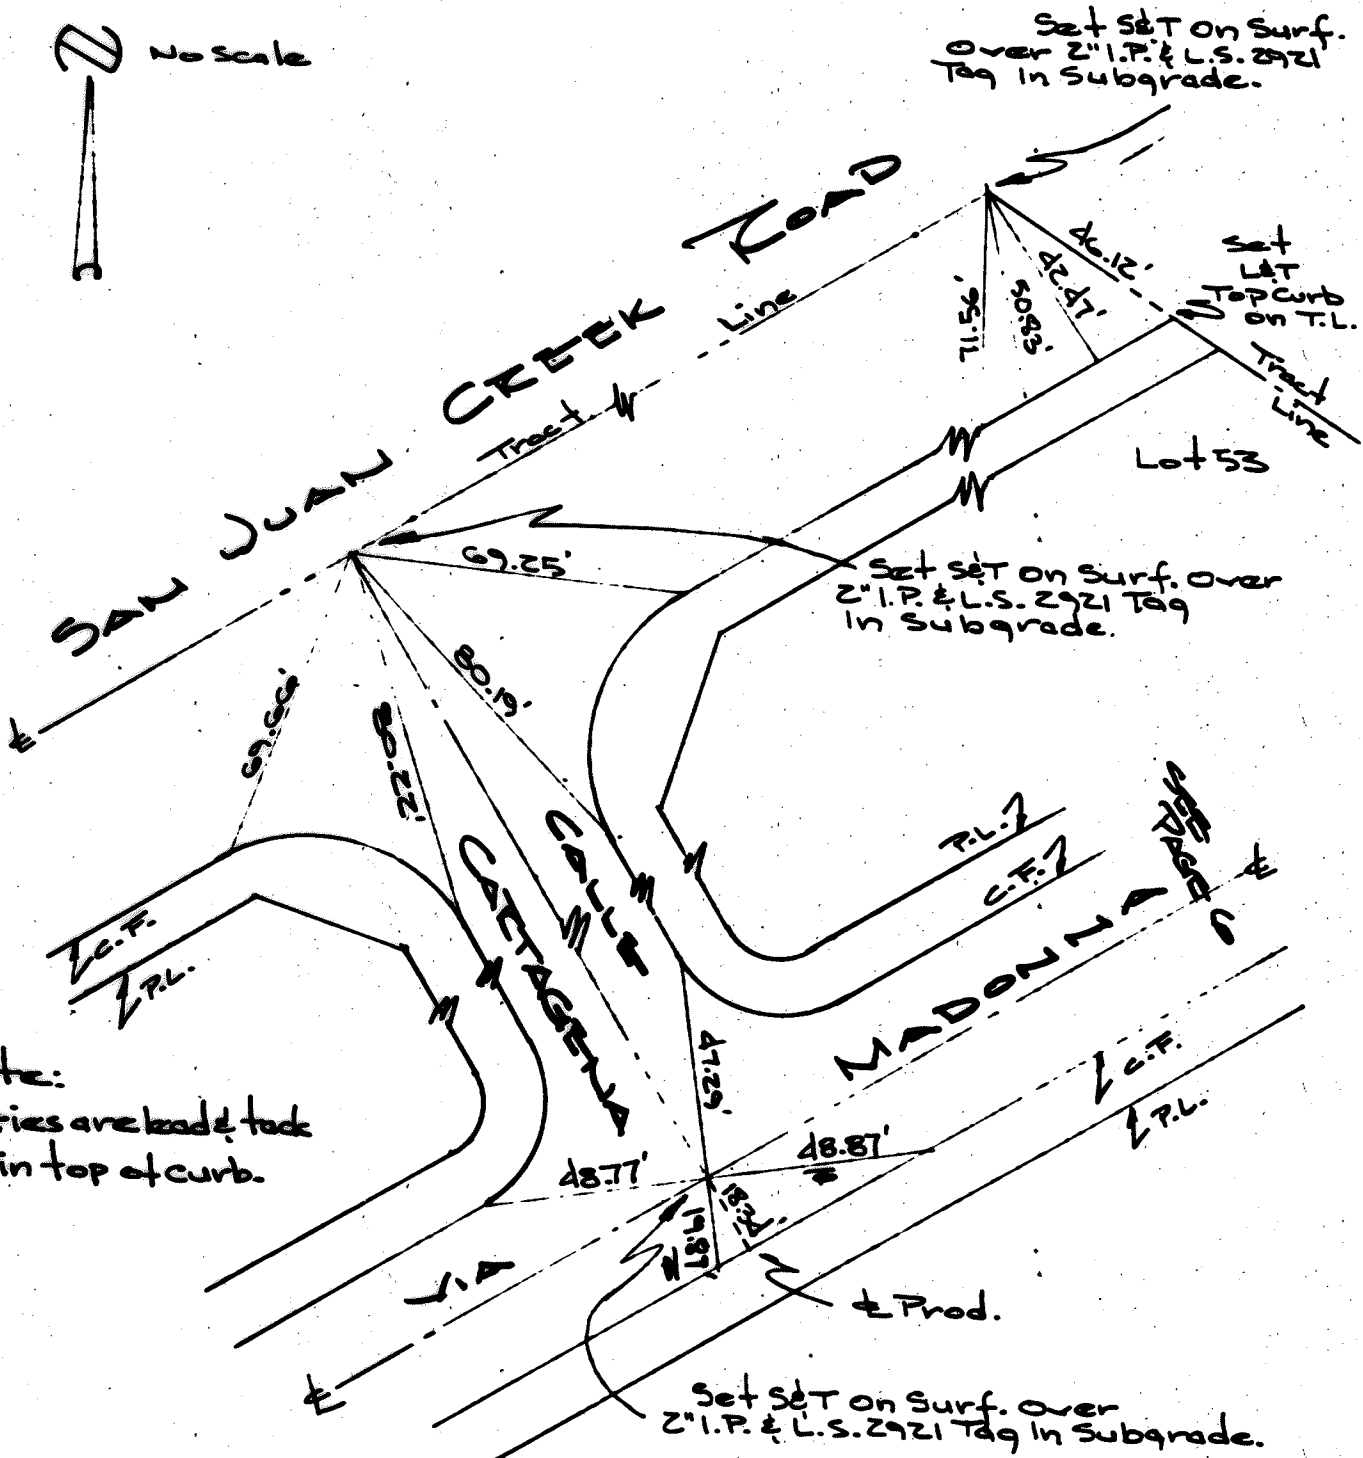 No Scale
Set S&T On Surf.
Over 2" I.P. & L.S. 2921
Tag In Subgrade.
SAN JUAN CREEK ROAD
Tract Line
46.12'
42.47'
50.83'
71.56'
Set
L&T
Top Curb
on T.L.
Tract
Line
Lot 53
69.25'
Set S&T On Surf. Over
2" I.P. & L.S. 2921 Tag
In Subgrade.
80.19'
69.66'
80.22'
℄
CALLE
CARTAGENA
P.L.
C.F.
SEE
PAGE 6
℄
C.F.
P.L.
VIA MADONNA
47.29'
C.F.
P.L.
te:
ties are lead & tack
in top of curb.
48.77'
48.87'
18.34'
19.87'
℄ Prod.
℄
Set S&T On Surf. Over
2" I.P. & L.S. 2921 Tag In Subgrade.